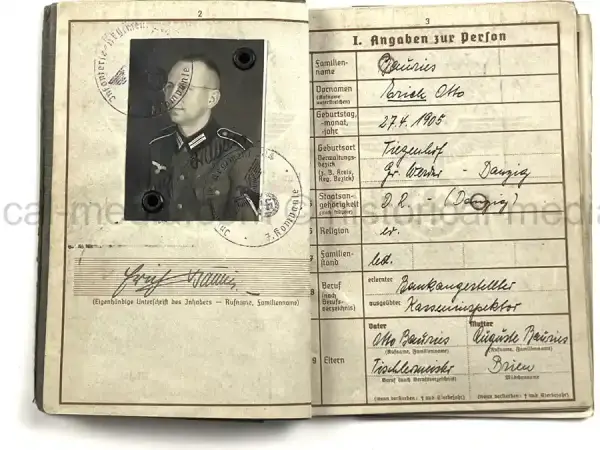 2
Infanterie-Regiment
Kompanie
7. Kompanie
Erich Bauries
(Eigenhändige Unterschrift des Inhabers — Rufname, Familienname)
3
I. Angaben zur Person
Familien-
name
Bauries
Vornamen
(Rufname
unterstreichen)
Erich Otto
Geburtstag,
-monat,
-jahr
27.4.1905
Geburtsort
Verwaltungs-
bezirk
(z. B. Kreis,
Reg. Bezirk)
Tiegenhof
Gr. Werder - Danzig
5 Staatsan-
gehörigkeit
(auch frühere)
D. R. - (Danzig)
6 Religion
ev.
7 Familien-
stand
led.
8 Beruf
(nach
Berufs-
verzeichnis)
erlernter
Bankangestellter
ausgeübter
Kasseninspektor
9 Eltern
Vater
Otto Bauries
(Rufname, Familienname)
Tischlermeister
Beruf (nach Berufsverzeichnis)
(wenn verstorben: † und Sterbejahr)
Mutter
Auguste Bauries
(Rufname, Familienname)
Brien
Mädchenname
(wenn verstorben: † und Sterbejahr)